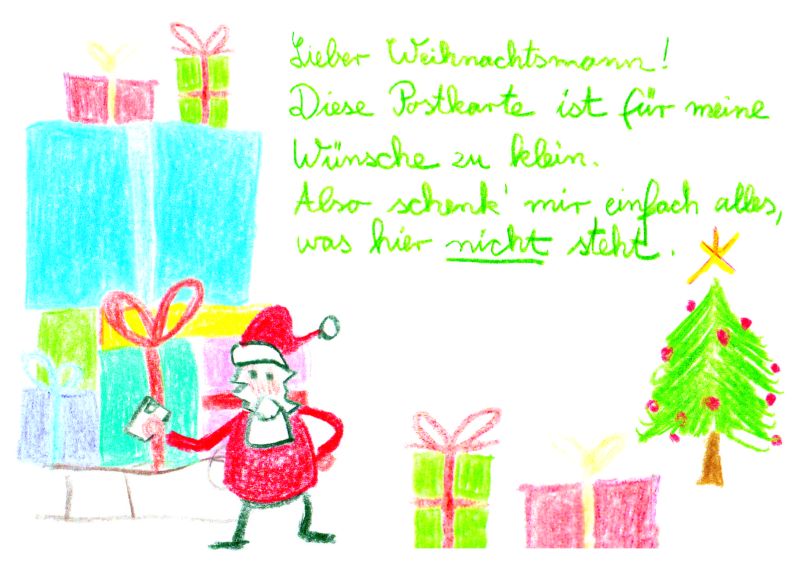 Lieber Weihnachtsmann!
Diese Postkarte ist für meine
Wünsche zu klein.
Also schenk' mir einfach alles,
was hier nicht steht.